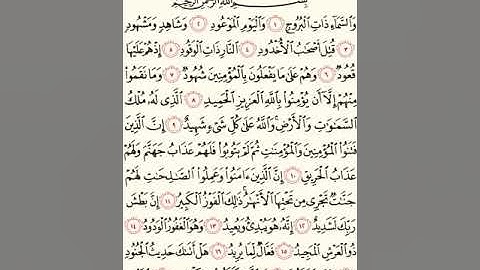 بِسْمِ اللَّهِ الرَّحْمَٰنِ الرَّحِيمِ
وَالسَّمَاءِ ذَاتِ الْبُرُوجِ ١ وَالْيَوْمِ الْمَوْعُودِ ٢ وَشَاهِدٍ وَمَشْهُودٍ
٣ قُتِلَ أَصْحَابُ الْأُخْدُودِ ٤ النَّارِ ذَاتِ الْوَقُودِ ٥ إِذْ هُمْ عَلَيْهَا
قُعُودٌ ٦ وَهُمْ عَلَىٰ مَا يَفْعَلُونَ بِالْمُؤْمِنِينَ شُهُودٌ ٧ وَمَا نَقَمُوا
مِنْهُمْ إِلَّا أَن يُؤْمِنُوا بِاللَّهِ الْعَزِيزِ الْحَمِيدِ ٨ الَّذِي لَهُ مُلْكُ
السَّمَٰوَٰتِ وَالْأَرْضِ وَاللَّهُ عَلَىٰ كُلِّ شَيْءٍ شَهِيدٌ ٩ إِنَّ الَّذِينَ
فَتَنُوا الْمُؤْمِنِينَ وَالْمُؤْمِنَٰتِ ثُمَّ لَمْ يَتُوبُوا فَلَهُمْ عَذَابُ جَهَنَّمَ وَلَهُمْ
عَذَابُ الْحَرِيقِ ١٠ إِنَّ الَّذِينَ ءَامَنُوا وَعَمِلُوا الصَّٰلِحَٰتِ لَهُمْ
جَنَّٰتٌ تَجْرِي مِن تَحْتِهَا الْأَنْهَٰرُ ذَٰلِكَ الْفَوْزُ الْكَبِيرُ ١١ إِنَّ بَطْشَ
رَبِّكَ لَشَدِيدٌ ١٢ إِنَّهُ هُوَ يُبْدِئُ وَيُعِيدُ ١٣ وَهُوَ الْغَفُورُ الْوَدُودُ ١٤
ذُو الْعَرْشِ الْمَجِيدُ ١٥ فَعَّالٌ لِّمَا يُرِيدُ ١٦ هَلْ أَتَىٰكَ حَدِيثُ الْجُنُودِ